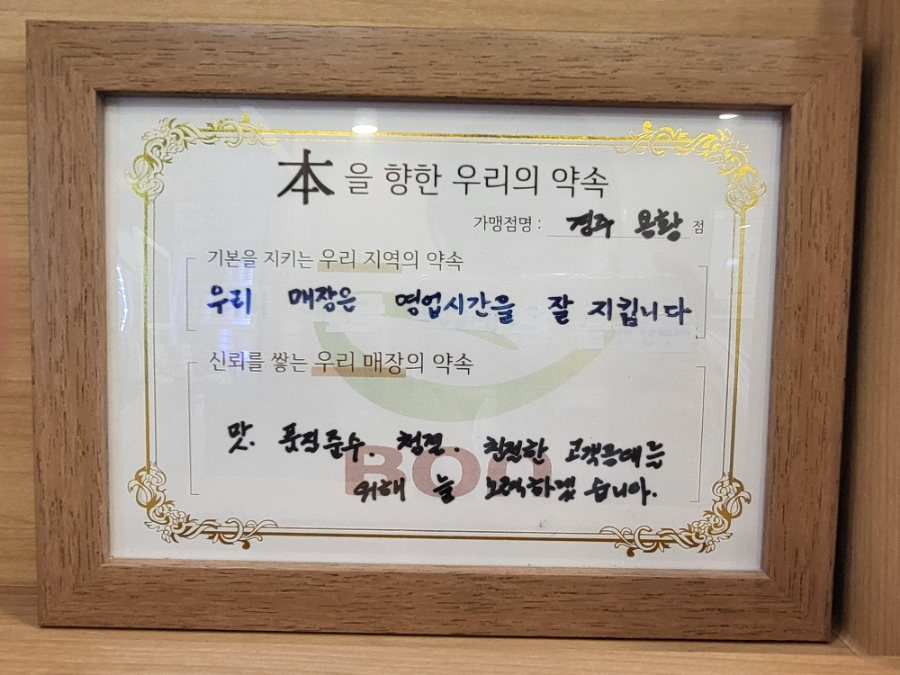 本을 향한 우리의 약속
가맹점명 : 경주 용황 점
기본을 지키는 우리 지역의 약속
우리 매장은 영업시간을 잘 지킵니다
신뢰를 쌓는 우리 매장의 약속
맛. 품질준수. 청결. 친절한 고객응대를
위해 늘 노력하겠습니다.
BOO